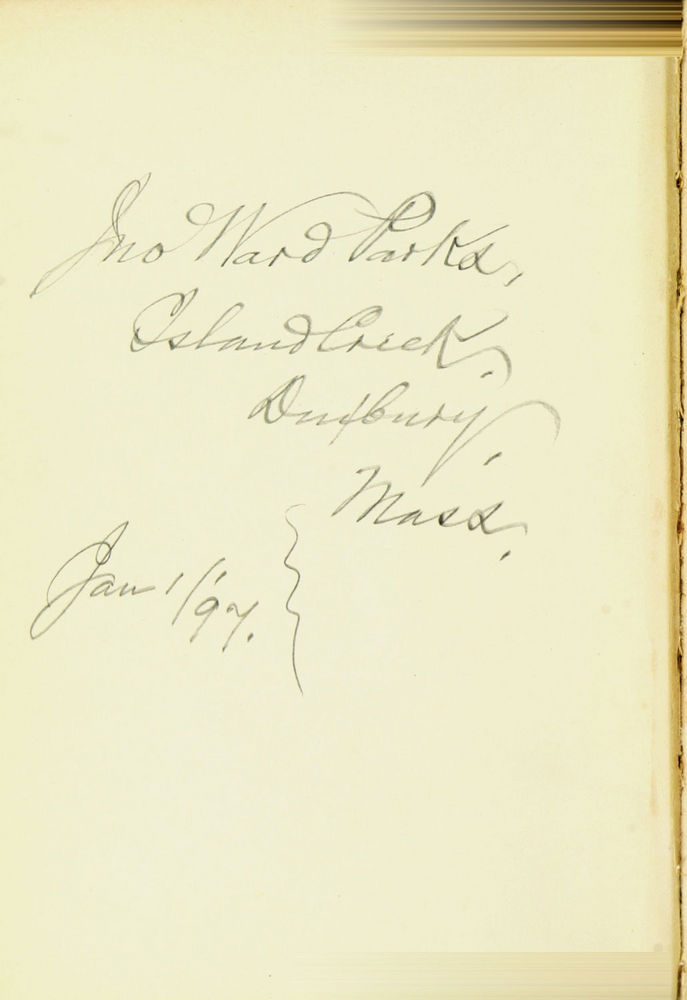 Jno Ward Parks,
Island Creek,
Duxbury,
Mass.
Jan 1/97.